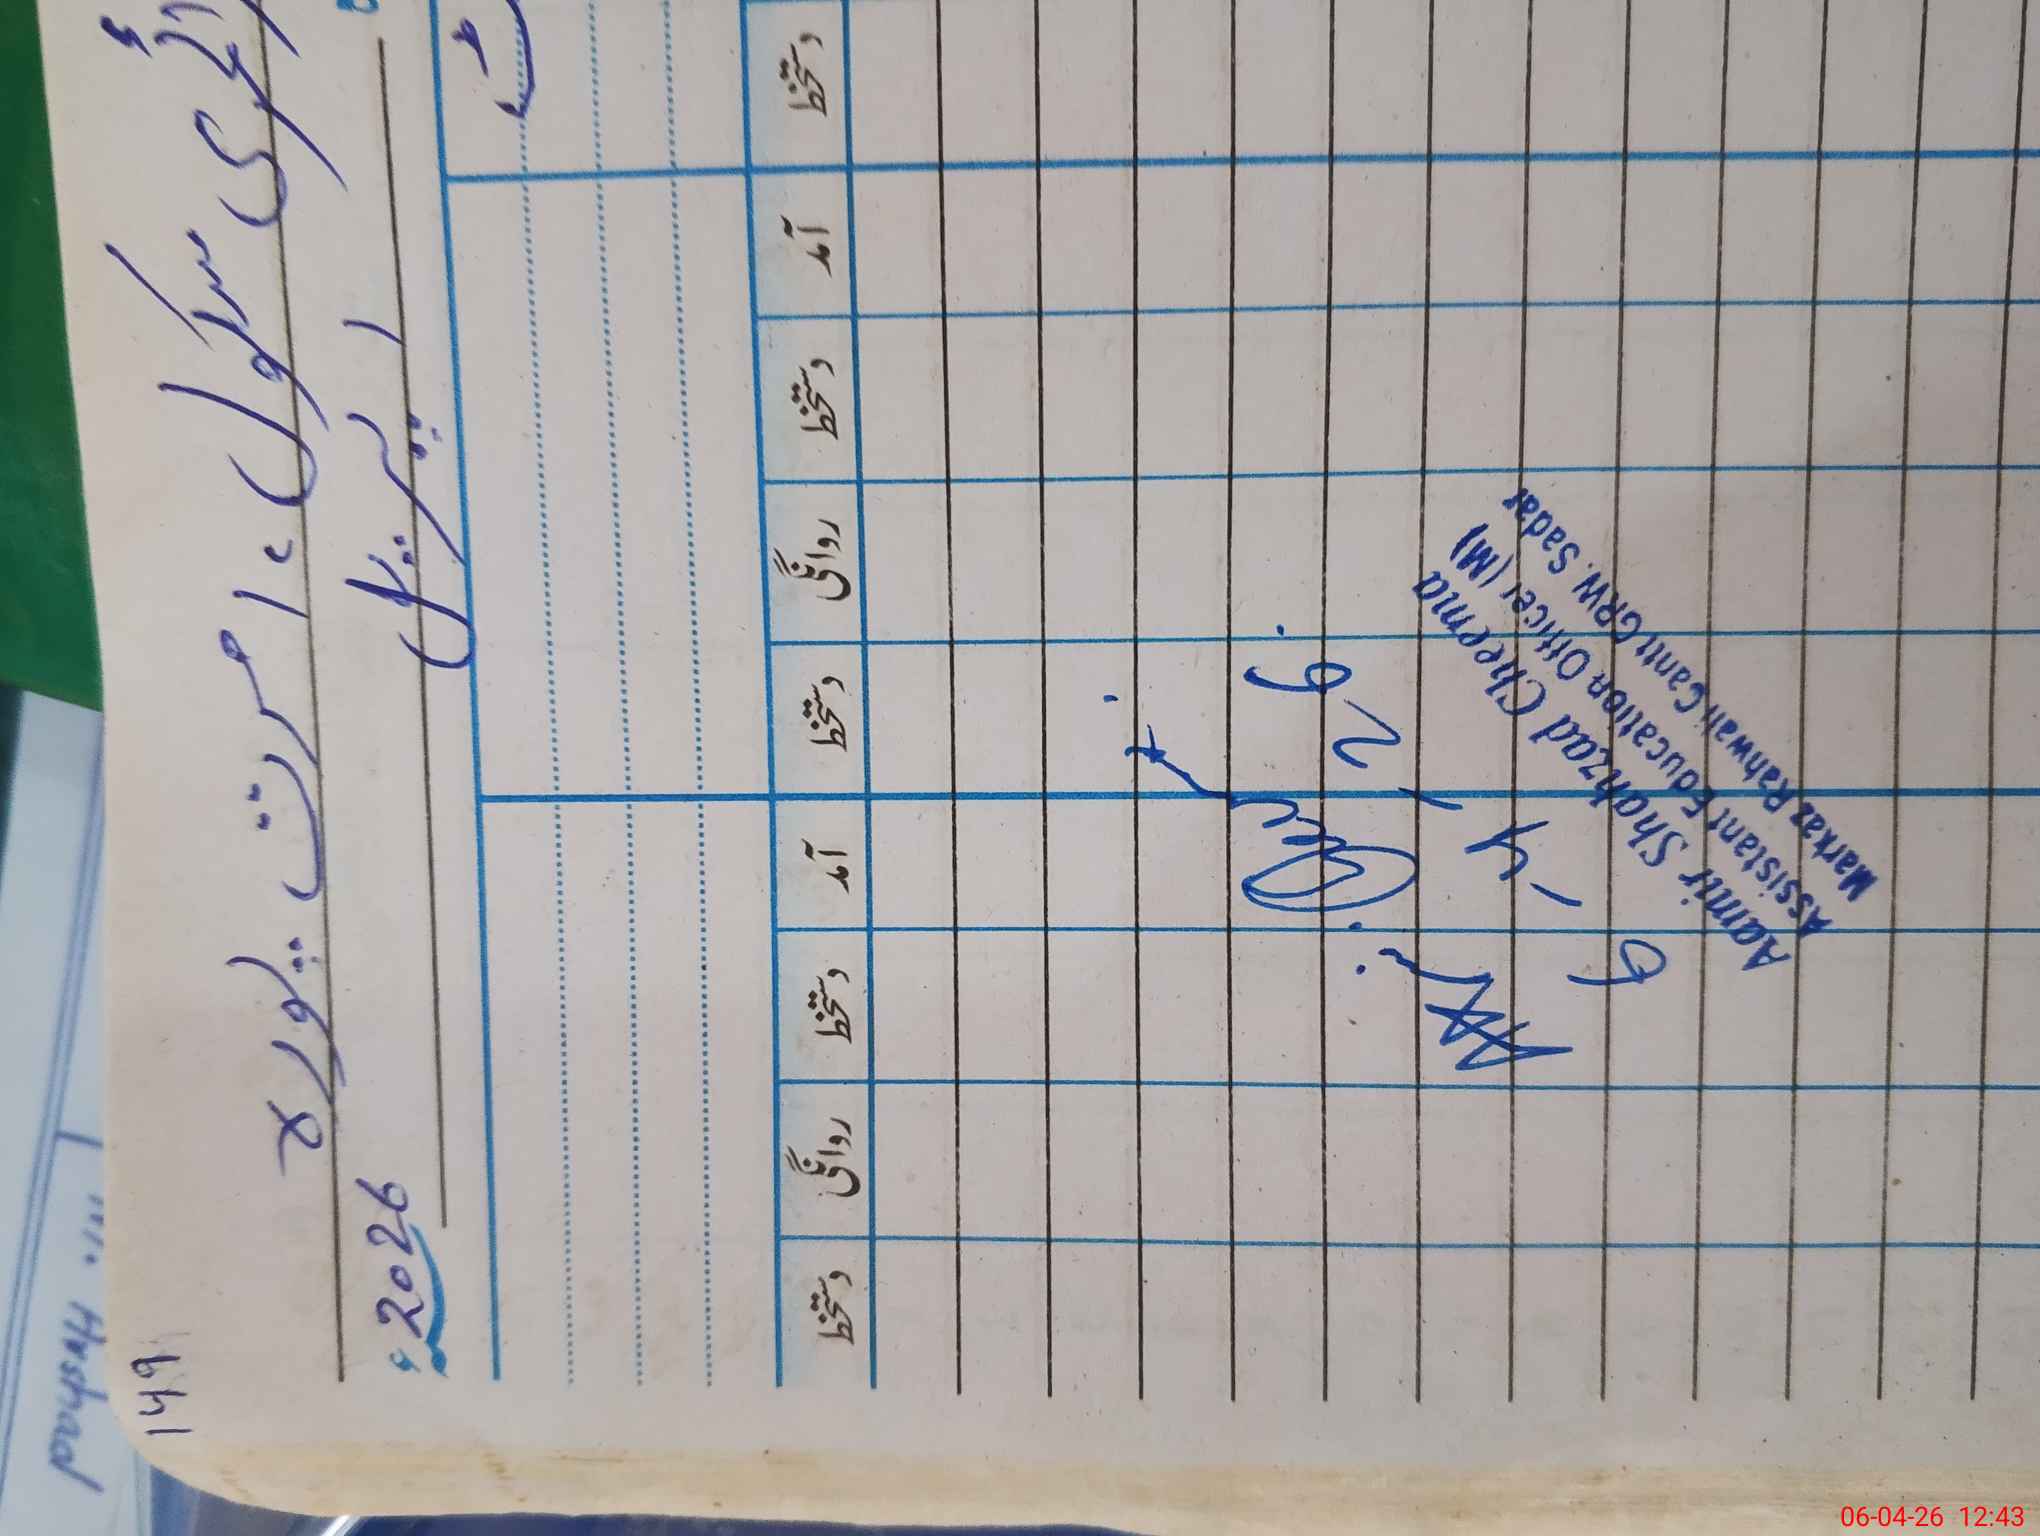 149
ئمری سکول، امرت پورہ
اپریل 2026ء
دستخط آمد دستخط روانگی دستخط آمد دستخط روانگی دستخط
6-4-26.
Aamir Shahzad Cheema
Assistant Education Officer (M)
Markaz Rahwali Cantt GRW. Sadar
Arshad
06-04-26 12:43